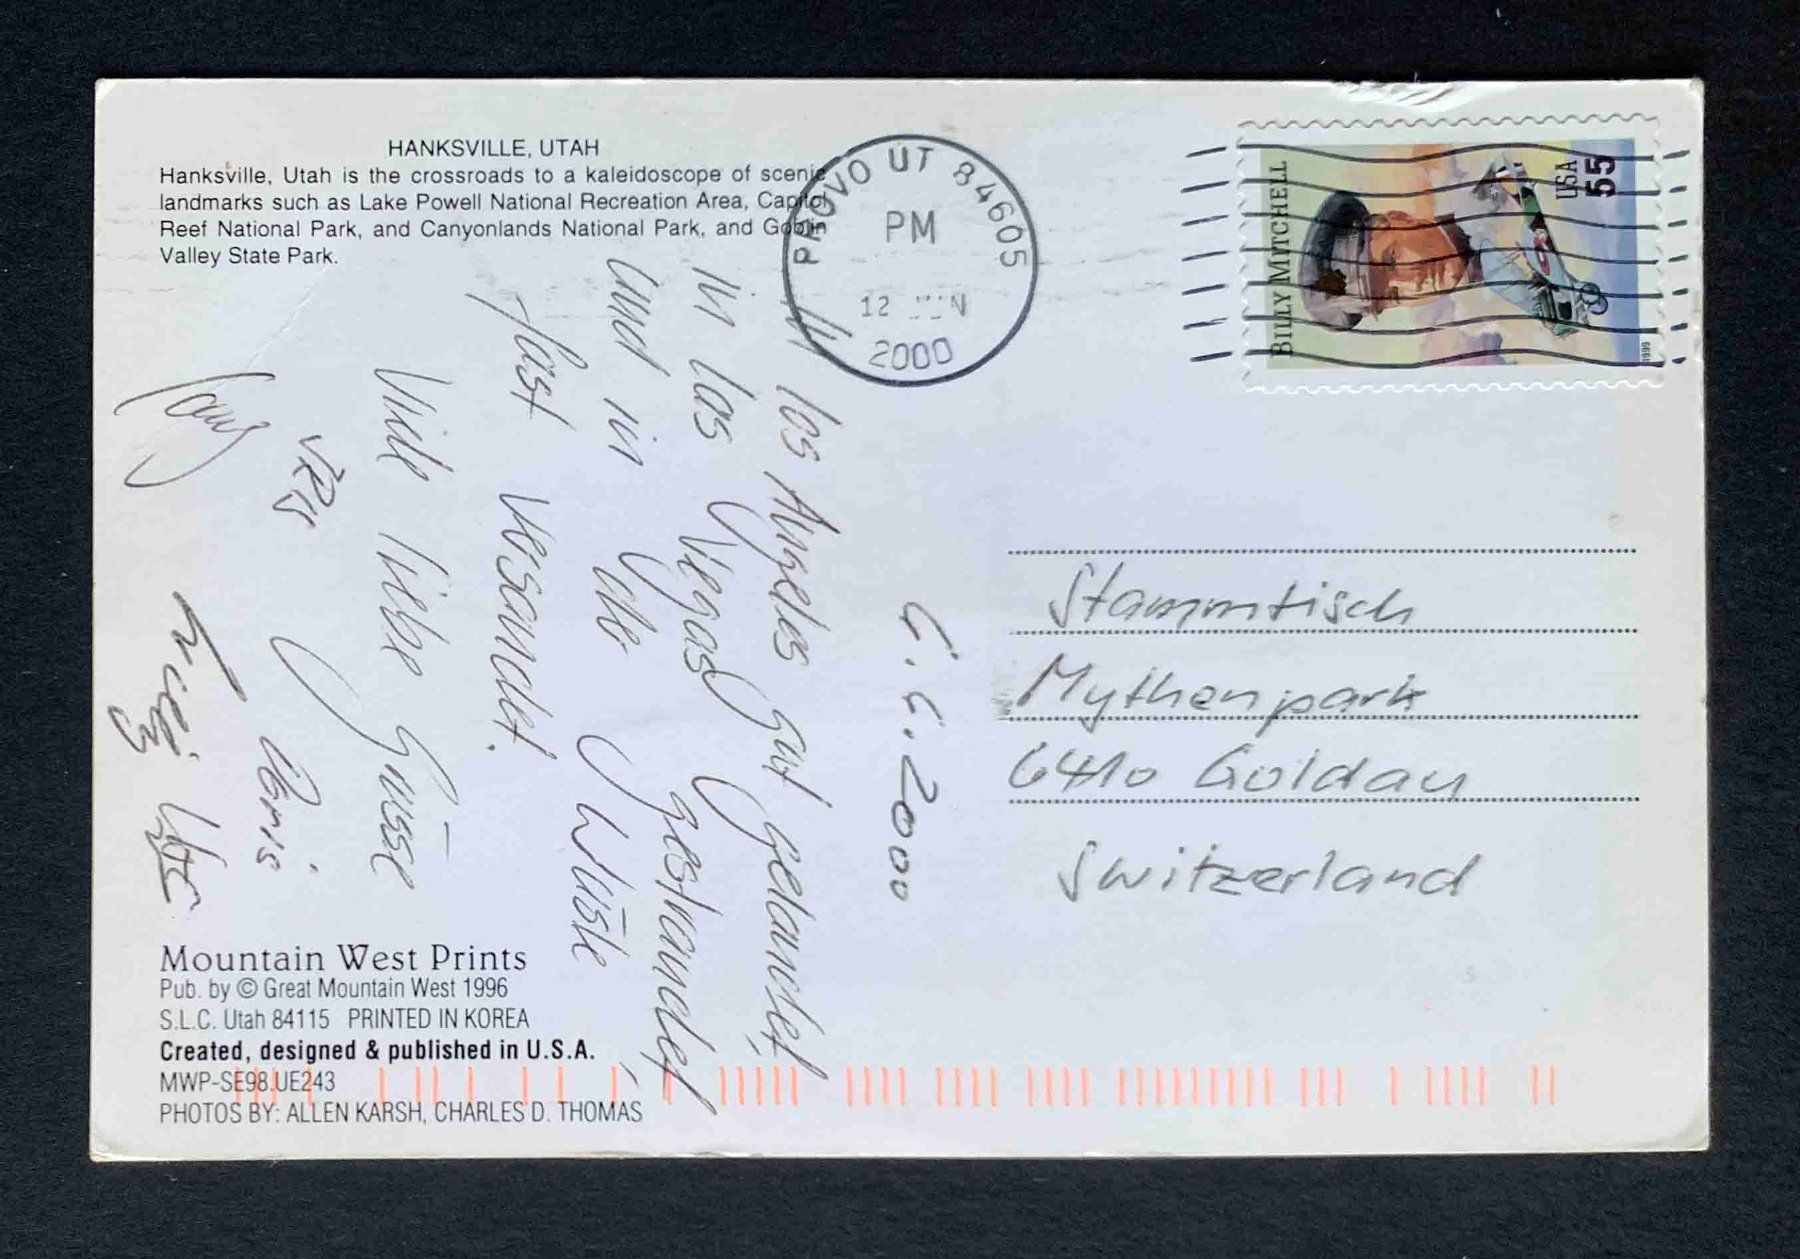 HANKSVILLE, UTAH
Hanksville, Utah is the crossroads to a kaleidoscope of scenic
landmarks such as Lake Powell National Recreation Area, Capitol
Reef National Park, and Canyonlands National Park, and Goblin
Valley State Park.
PROVO UT 84605
PM
12 JUN
2000
BILLY MITCHELL
USA
55
1999
6.6.2000
In Los Angeles gut gelandet,
in Las Vegas gestrandet,
und in der Wüste
fast versandet.
Viele liebe Grüsse
Urs Doris
Stammtisch
Mythenpark
6410 Goldau
Switzerland
Mountain West Prints
Pub. by © Great Mountain West 1996
S.L.C. Utah 84115 PRINTED IN KOREA
Created, designed & published in U.S.A.
MWP-SE98.UE243
PHOTOS BY: ALLEN KARSH, CHARLES D. THOMAS